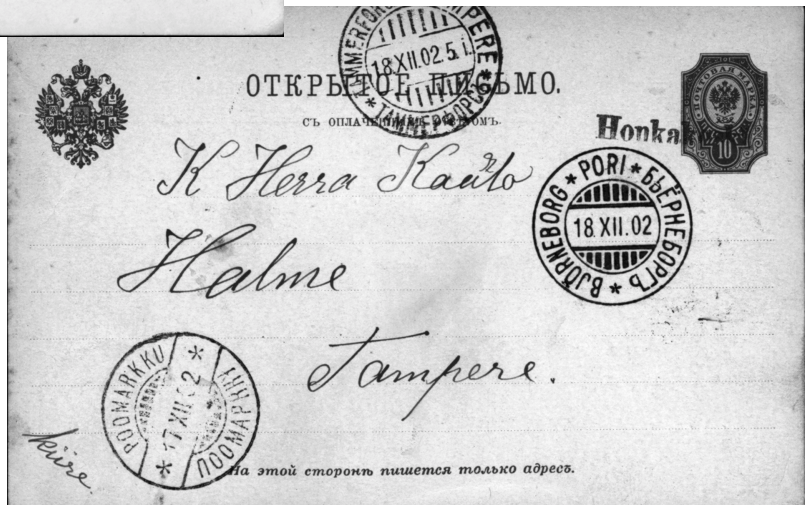 TAMMERFORS * TAMPERE * ТАММЕРФОРСЪ
18.XII.02.5 i.
ОТКРЫТОЕ ПИСЬМО.
ПОЧТОВАЯ МАРКА
10
Honka
K Herra Kauto
Halme
Tampere.
BJÖRNEBORG * PORI * БЬЁРНЕБОРГЪ *
18.XII.02
POOMARKKU * ПООМАРККУ *
17 XII 02
kiire.
На этой сторонѣ пишется только адресъ.